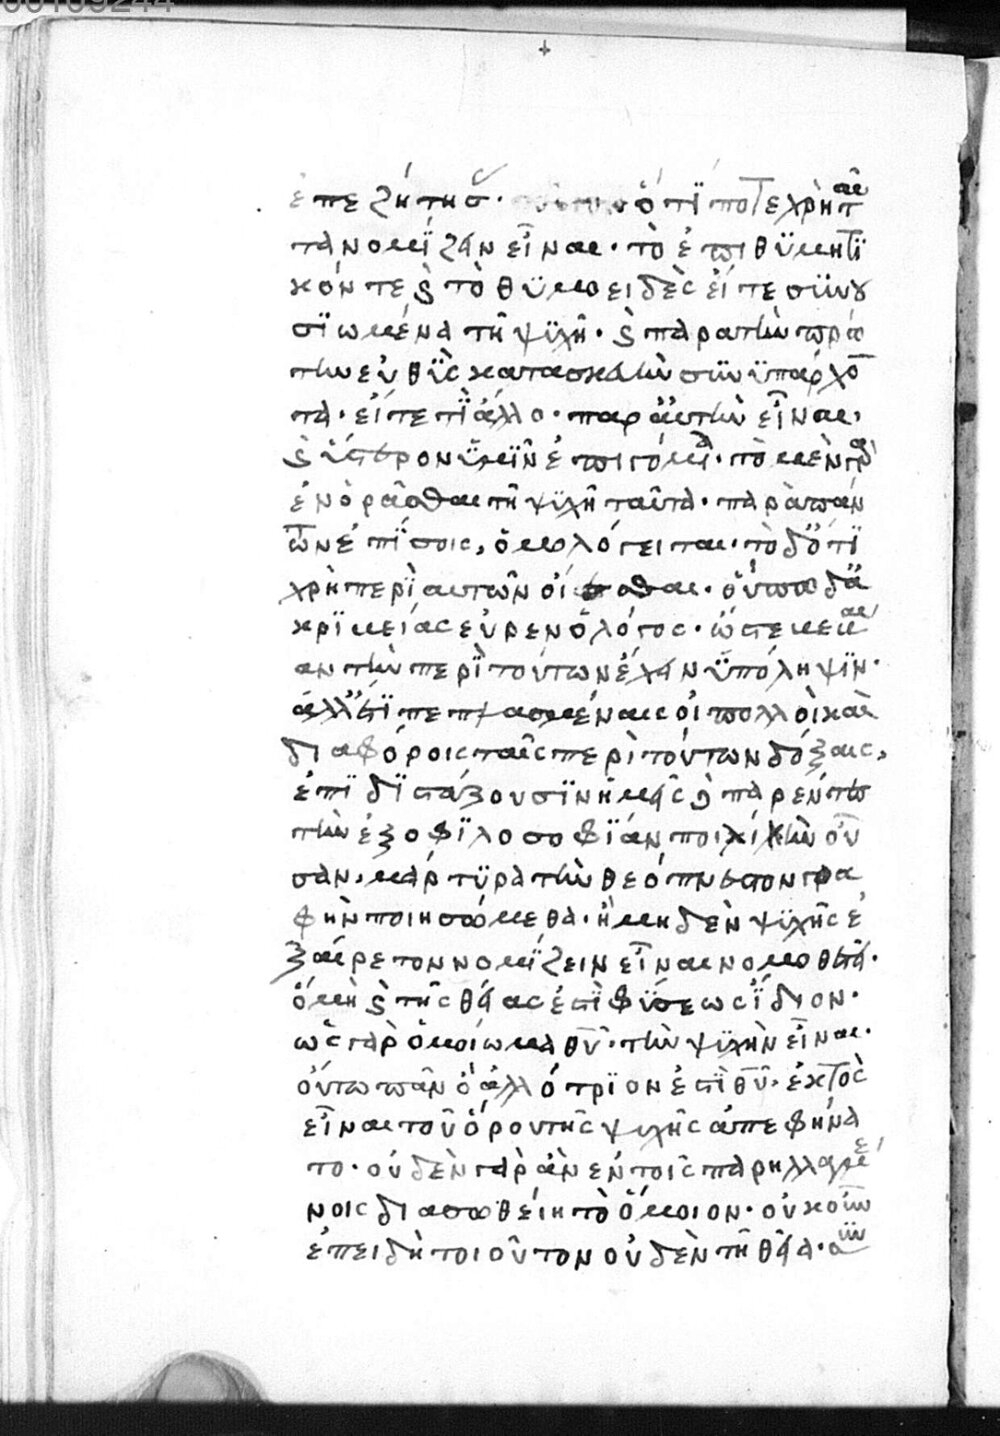 ἐπεζήτησ. ὅτί ποτε χρὴ ταῦ
τα νομίζειν εἶναι· τὸ ἐπιθυμητι
κόν τε καὶ τὸ θυμοειδὲς εἴτε συνου
σιωμένα τῆ ψυχῆ· καὶ παρὰ τὴν πρώ
την εὐθὺς κατασκευὴν συνυπάρχον
τα· εἴτε τὶ ἄλλο· παρ αὐτὴν εἶναι,
καὶ ὕστερον ἡμῖν ἐπιγόμενα· τὸ μὲν γὰρ
ἐνορᾶσθαι τῆ ψυχῆ ταῦτα· παρὰ πάν
των ἐπίσοις, ὁμολόγειται· τὸ δὅτι
χρὴ περὶ αυτῶν οἴεσθαι· οὔπω δι
ακριβείας εὗρεν ὁ λόγος· ὥστε βεβαί
αν τὴν περὶ τούτων ἔχειν ὑπόληψιν·
ἀλλ ἔτι πεπλασμέναις οἱ πολλοὶ καὶ
διαφόροις ταῖς περὶ τούτων δόξαις,
ἐπιδιστάζουσιν ἡμᾶς
τὴν ἔξο φιλοσοφίαν ποικίλην οὖ
σαν, μάρτυρα τὴν θεόπνευστον γρα
φὴν ποιησώμεθα· ἣ μηδὲν ψυχῆς ἐ
ξαίρετον νομίζειν εἶναι νομοθετεῖ·
ὃ μὴ καὶ τῆς θείας ἐστὶ φύσεως ἴδιον·
ὡς γὰρ ὁμοίωμα θυ τὴν ψυχὴν εἶναι·
οὕτω πᾶν ὃ ἀλλότριον ἐστὶ θυ, ἐκτὸς
εἶναι τοῦ ὅρου τῆς ψυχῆς ἀπεφήνα
το· οὐδὲν γὰρ ἂν ἐν τοῖς παρηλλαγμέ
νοις διασωθείη τὸ ὅμοιον· οὐκοῦν
ἐπειδὴ τοιοῦτον οὐδὲν τῆ θεία·